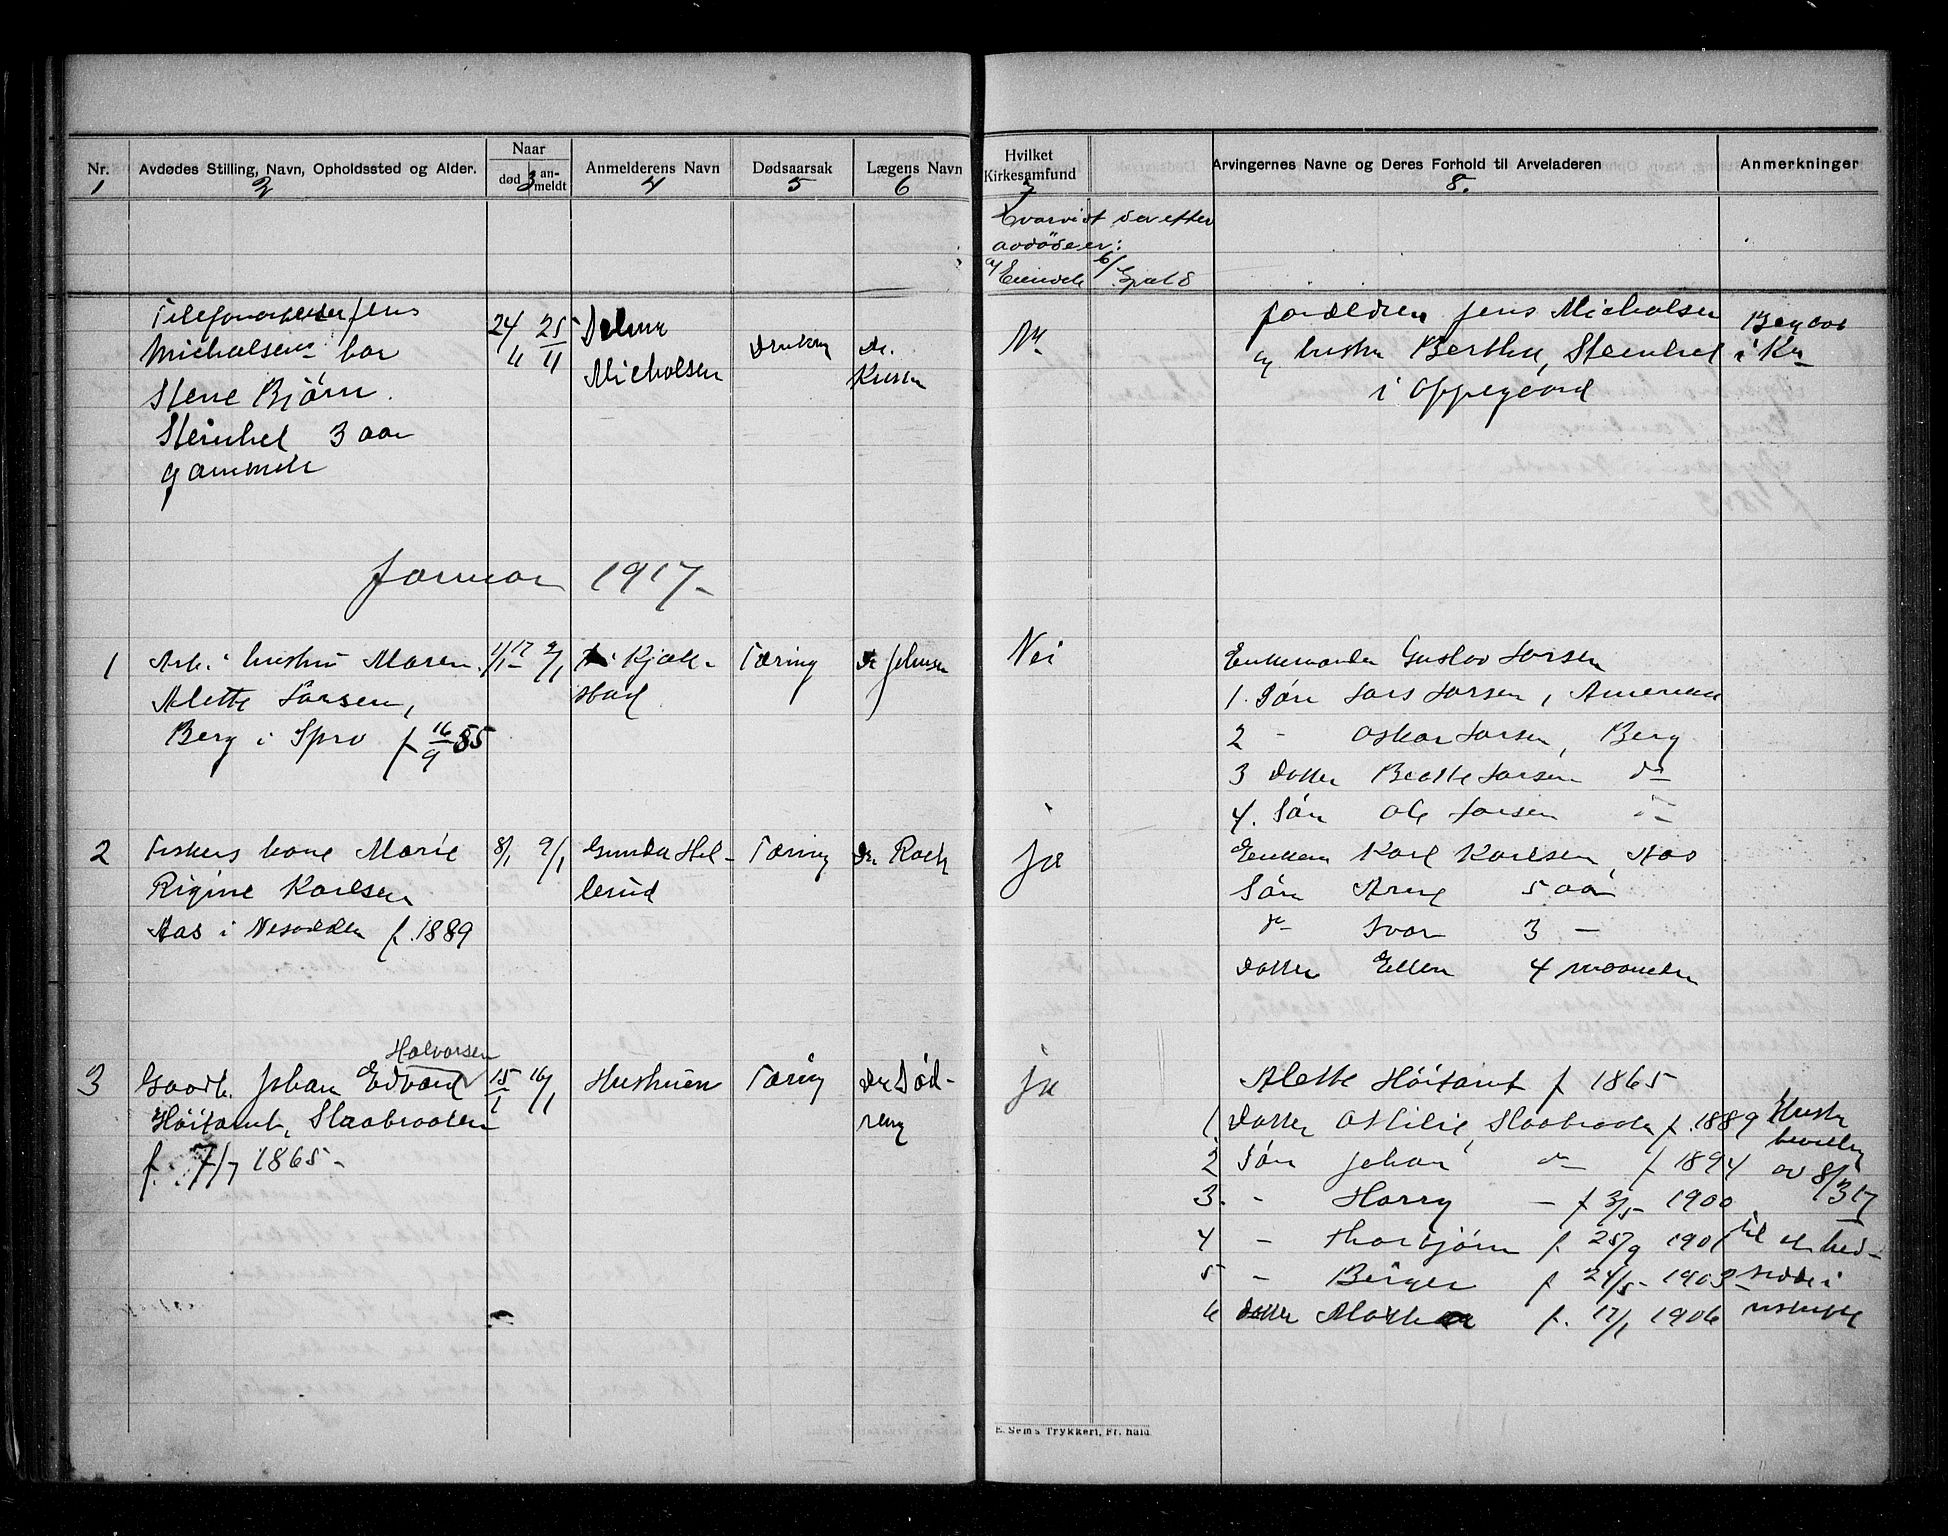 Nr. Avdødes Stilling, Navn, Opholdssted og Alder. Naar død an-meldt Anmelderens Navn Dødsaarsak Lægens Navn Hvilket Kirkesamfund Arvingernes Navne og Deres Forhold til Arveladeren Anmerkninger
1 2 3 4 5 6 7 8.
Hvorvidt der efter
avdøde er:
a/ Eiendele b/ Gjæld
Jens
Micholsens barn
Stene Bjørn
Steinhel 3 aar
gammel
24/11 25/11
Micholsen
Dr.
Forældren Jens Micholsen
og hustru Berthe, Steinhel
i Oppegaard
i Kr
Januar 1917-
1 Arb. hustru Maren
Alette Larsen,
Berg i Spro f 16/9 85
9/1
Kjæl-
stad
Tæring
Dr Johnsen
Nei
Enkemanden Gustav Larsen
1. Søn Lars Larsen, Amerika
2 - Oskar Larsen, Berg
3 Datter Beatte Larsen do
4. Søn Ole Larsen -
2 Fiskers kone Marie
Rigine Karlsen
Aas i Nesodden f. 1889
8/1 9/1
Gunda Hel-
lerud
Tæring
Dr Roch
ja
Enkem Karl Karlsen, Aas
Søn Arne 5 aar
do Ivar 3 -
Datter Ellen 4 maaneder
3 Halvorsen
Gaardb. Johan Edvard
Høitomt, Skaabraaten
f. 7/7 1865-
15/1 16/1
Hustruen
Tæring
Dr Sød-
reng
ja
Alette Høitomt f 1865
1 Datter Othilie, Skaabraaten f. 1889
2 Søn Johan do f 1894
3. - Harry - f 3/5 1900
4 - Thorbjørn f. 25/9 1901
5 - Birger f 24/5 1903
6 Datter Martha f. 17/1 1906
bevilling
av 8/3 17
til at hed-
sidde i
uskifte
E. Sems Trykkeri, Fr.hald